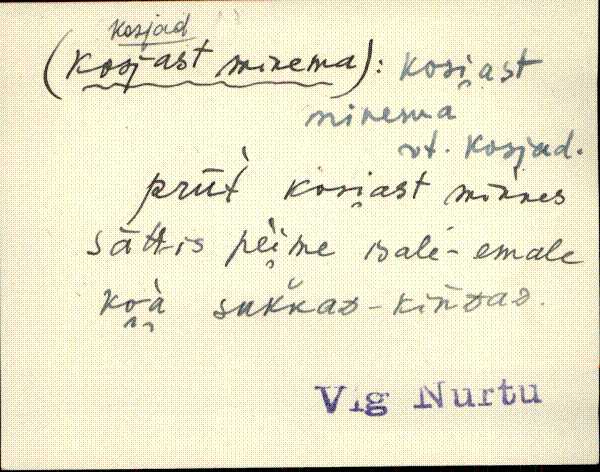 kosjad
(kosjast minema): kosi̯ast
minema
vt. kosjad.
prūt̀ kosi̯ast minnes
sättis pèi̯me isale-emale
ko̯à̯ sukkaᴅ-kinᴅaᴅ.
Vig Nurtu